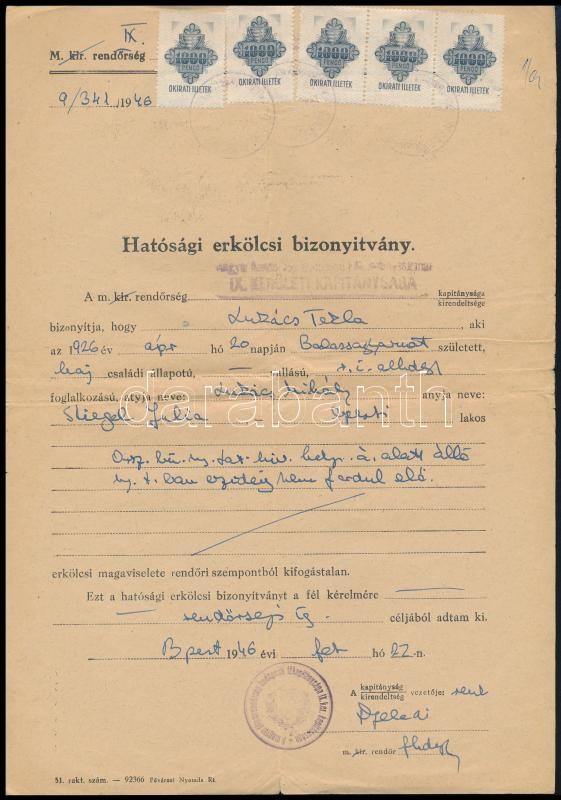 IX.
M. kir. rendőrség
9/341/1946
1000 PENGŐ OKIRATI ILLETÉK
1000 PENGŐ OKIRATI ILLETÉK
1000 PENGŐ OKIRATI ILLETÉK
1000 PENGŐ OKIRATI ILLETÉK
1000 PENGŐ OKIRATI ILLETÉK
Hatósági erkölcsi bizonyitvány.
IX. KERÜLETI KAPITÁNYSÁGA
A m. kir. rendőrség kapitánysága
kirendeltsége
bizonyitja, hogy Lukács Tekla, aki
az 1926 év ápr hó 20 napján Balassagyarmat született,
haj családi állapotú, — vallású,
foglalkozású, atyja neve: Lukács Mihály anyja neve:
Stiegel Julia bpesti lakos
darabanth
álló
ban ezideig nem fordul elő.
erkölcsi magaviselete rendőri szempontból kifogástalan.
Ezt a hatósági erkölcsi bizonyitványt a fél kérelmére
rendőrségi ig. céljából adtam ki.
Bpest 1946 évi feb hó 22-n.
A kapitányság
kirendeltség vezetője:
m. kir. rendőr
51. rakt. szám. — 92366 Fővárosi Nyomda Rt.